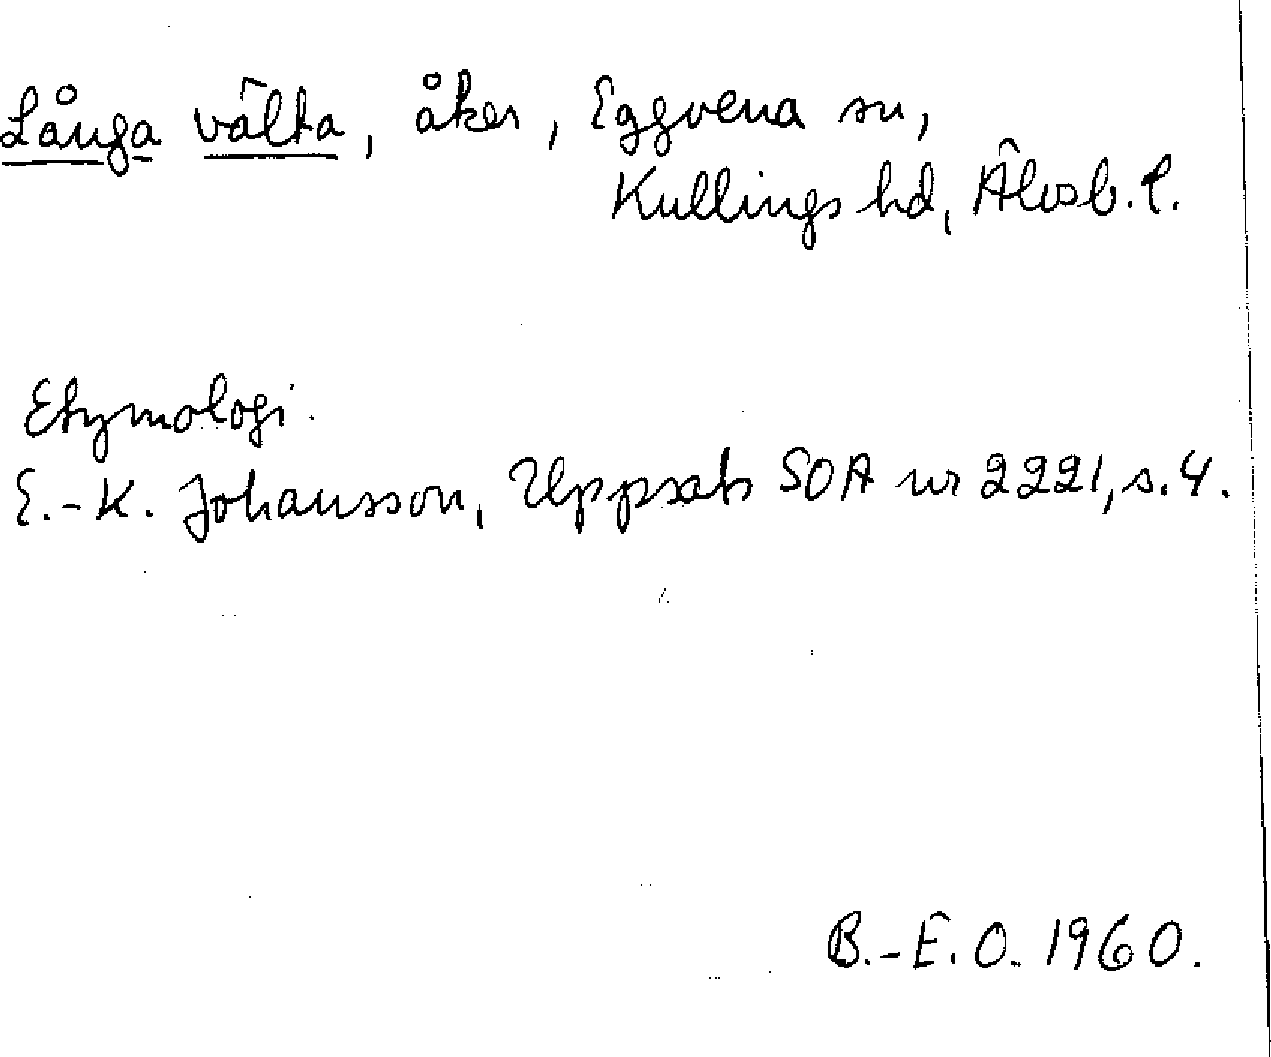 Långa välta, åker, Eggvena sn,
Kullings hd, Älvsb. l.
Etymologi.
E.-K. Johansson, Uppsats SOA nr 2221, s. 4.
B.-E. O. 1960.